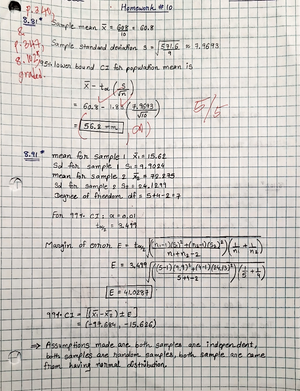 Homework # 10
p.344,
8.81* Sample mean x̄ = 608/10 = 60.8
&
p.347,
Sample standard deviation s = √(571.6/9) ≈ 7.9693
95% lower bound CI for population mean is
graded.
x̄ - tα (s/√n)
= 60.8 - 1.83 (7.9693/√10)
= (56.2 - ∞)
5/5
8.91* mean for sample 1 x̄₁ = 15.62
Sd for sample 1 S₁ = 9.9024
mean for sample 2 x̄₂ = 72.275
Sd for sample 2 S₂ = 24.1299
Degree of freedom df = 5+4-2 = 7
For 99% CI: α = 0.01
tα/2 = 3.499
Margin of error E = tα/2 √((n₁-1)(S₁)²+(n₂-1)(S₂)²/n₁+n₂-2) (1/n₁ + 1/n₂)
E = 3.499 √((5-1)(9.9)²+(4-1)(24.13)²/5+4-2) (1/5 + 1/4)
E = 41.0287
99% CI = [(x̄₁-x̄₂) ± E]
= (-97.684, -15.626)
⇒ Assumptions made are both samples are independent,
both samples are random samples, both sample are came
from having normal distribution.